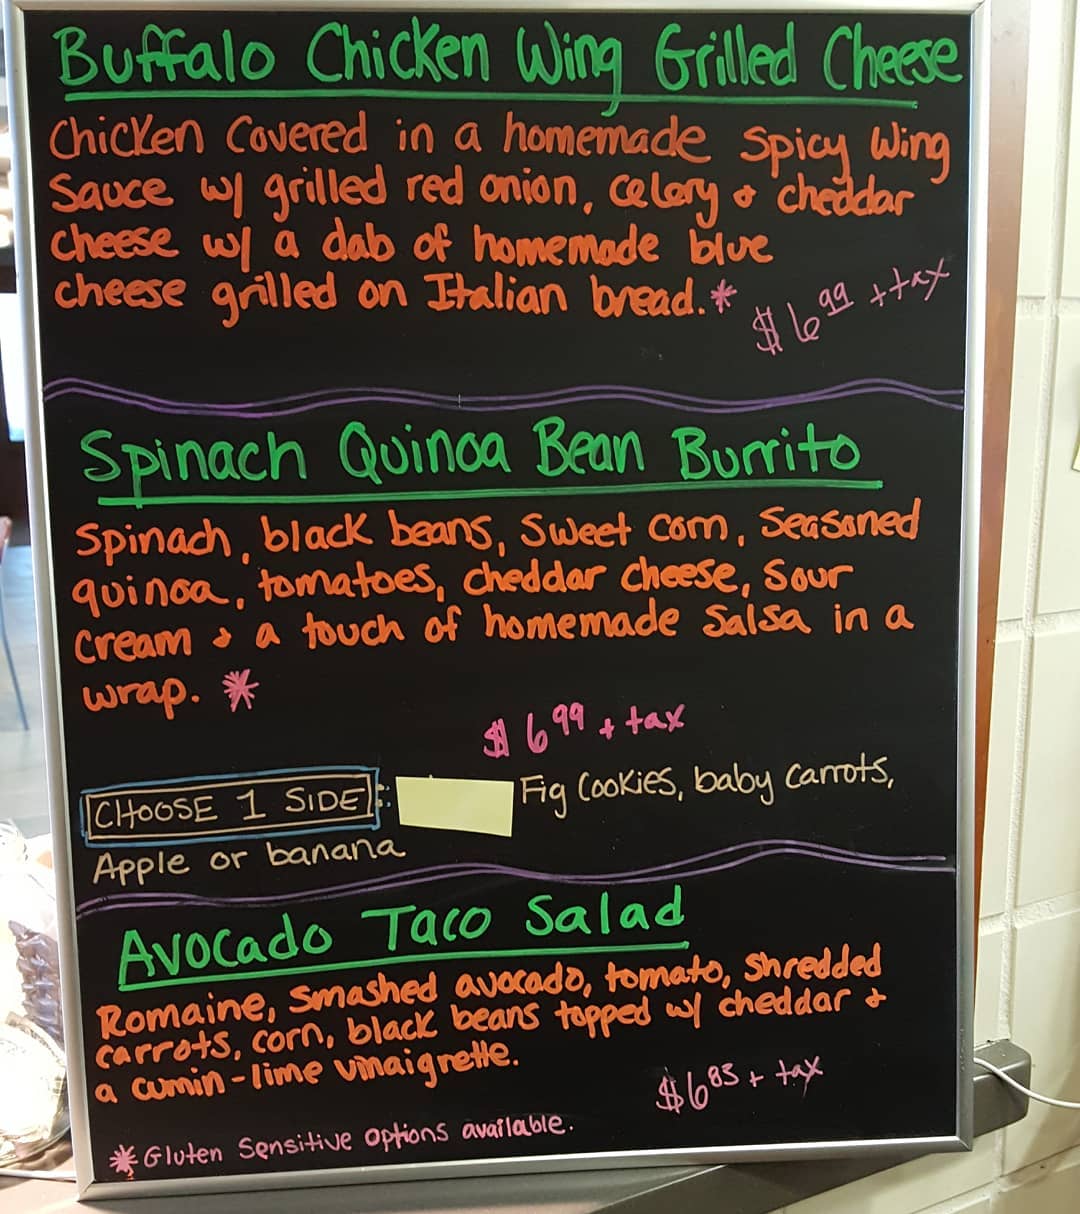 Buffalo Chicken Wing Grilled Cheese
Chicken Covered in a homemade Spicy Wing
Sauce w/ grilled red onion, celery + cheddar
cheese w/ a dab of homemade blue
cheese grilled on Italian bread.*
$6.99 + tax
Spinach Quinoa Bean Burrito
Spinach, black beans, Sweet corn, Seasoned
quinoa, tomatoes, cheddar cheese, Sour
cream + a touch of homemade Salsa in a
wrap. *
$6.99 + tax
CHOOSE 1 SIDE: Fig Cookies, baby carrots,
Apple or banana
Avocado Taco Salad
Romaine, smashed avocado, tomato, shredded
carrots, corn, black beans topped w/ cheddar +
a cumin-lime vinaigrette.
$6.85 + tax
* Gluten Sensitive options available.